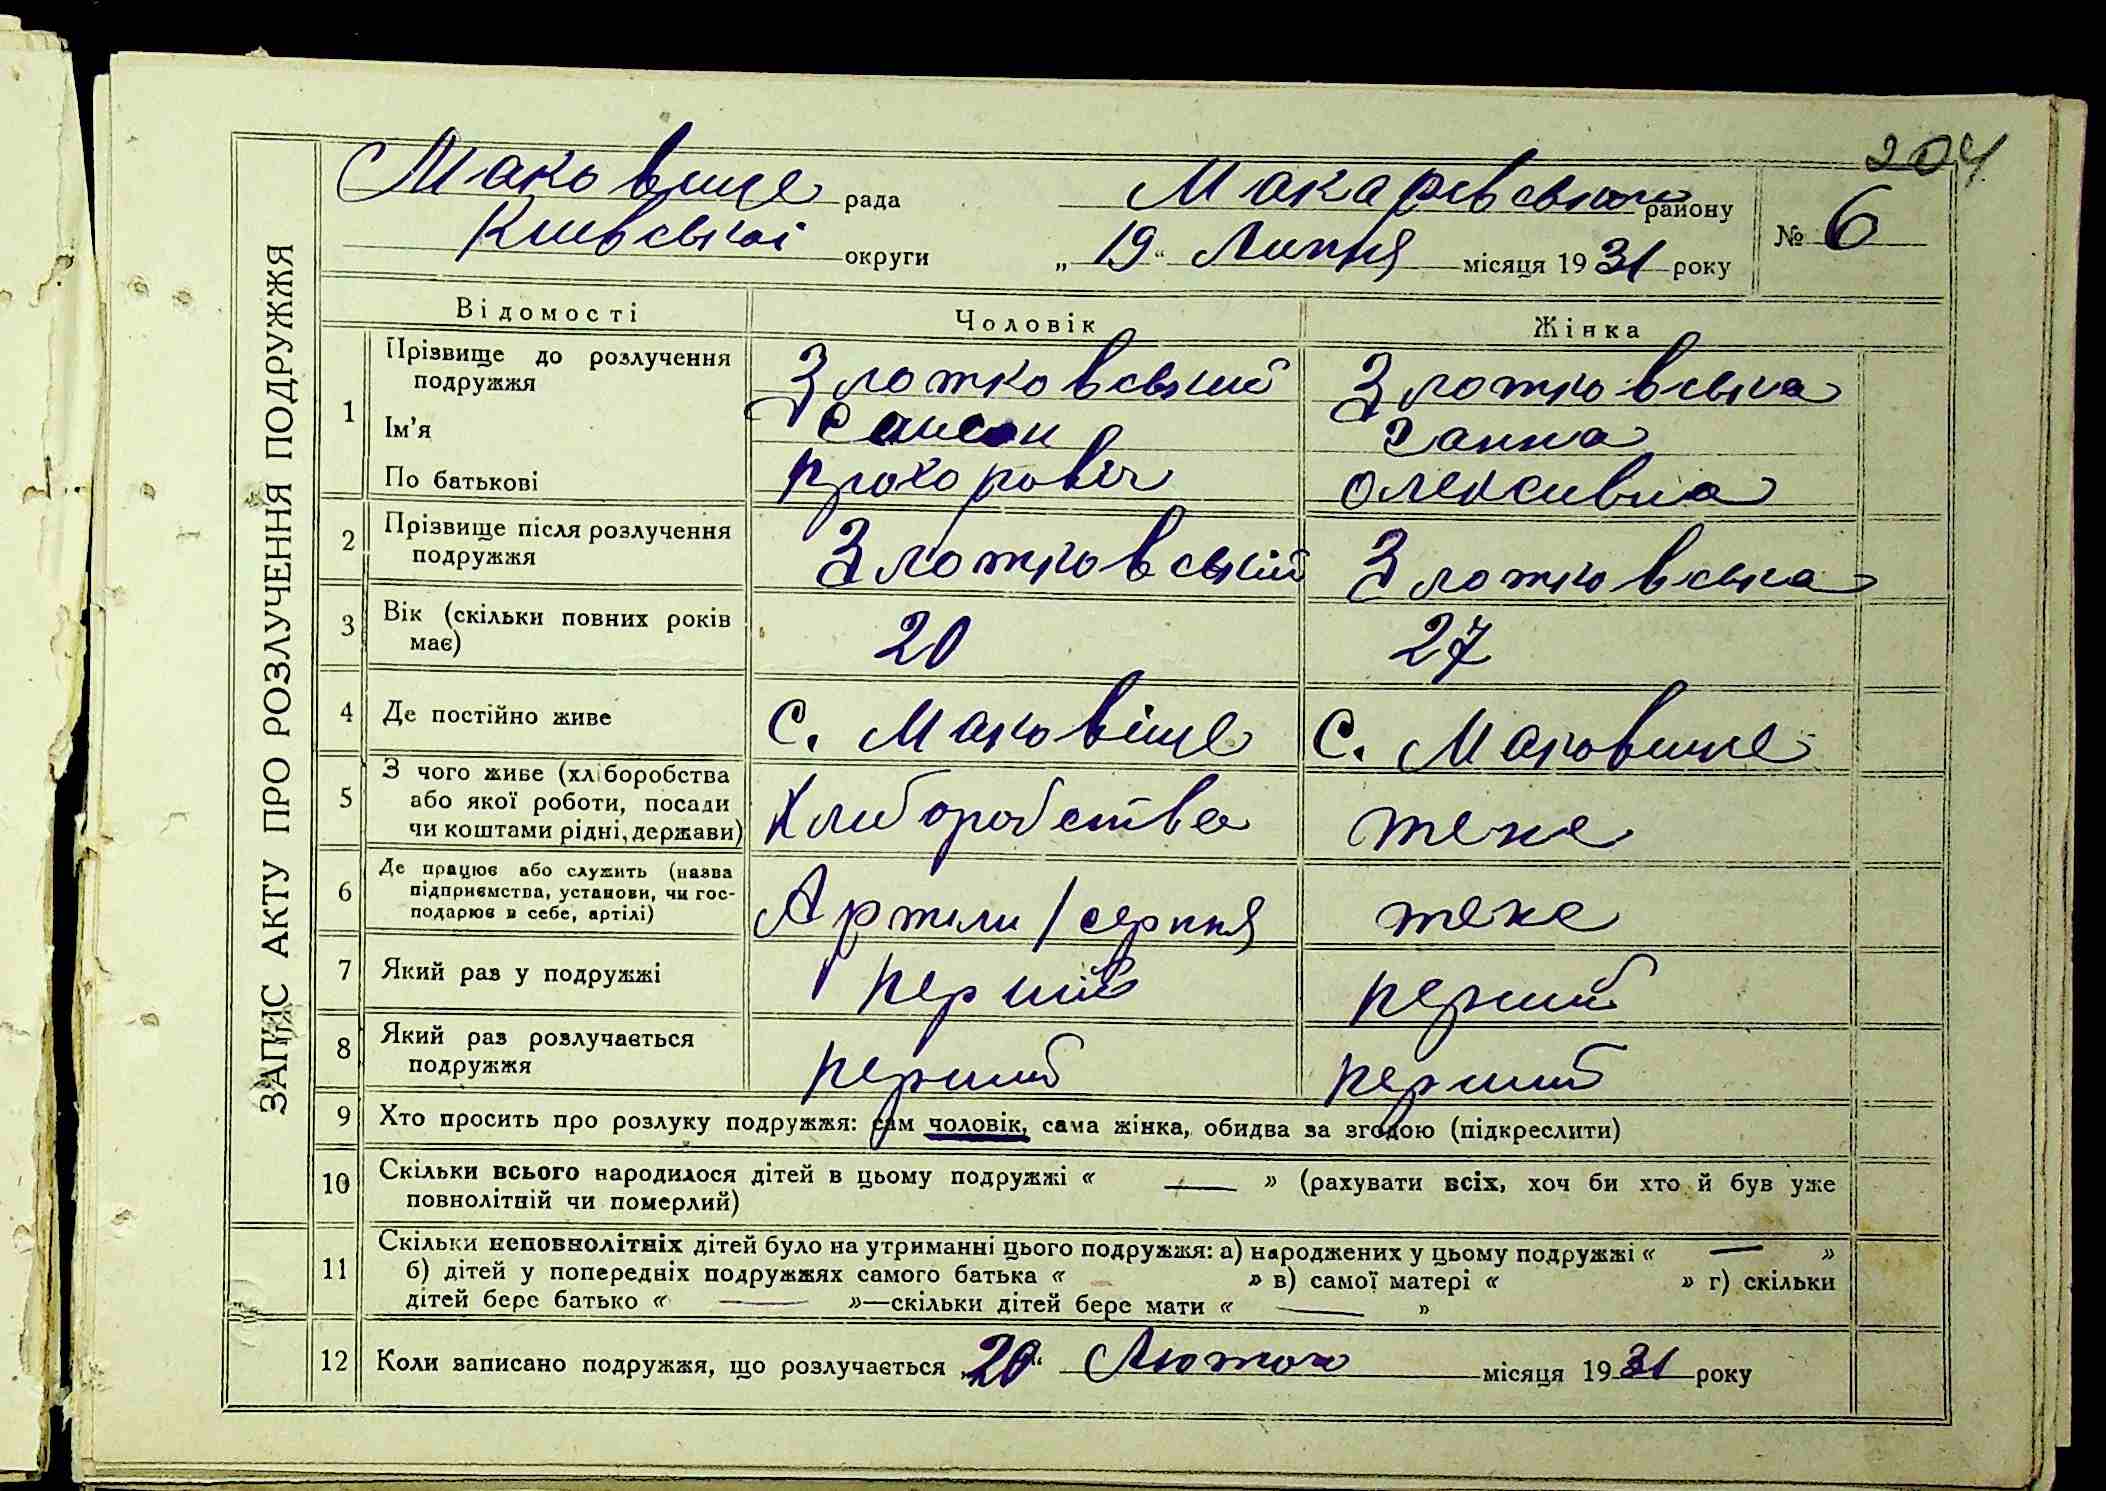 204
ЗАПИС АКТУ ПРО РОЗЛУЧЕННЯ ПОДРУЖЖЯ
Маковище рада Макарівського району № 6
Київської округи „ 19 “ Липня місяця 1931 року
Відомості Чоловік Жінка
1 Прізвище до розлучення подружжя Злотковський Злотковська
Ім'я Самсон Ганна
По батькові Прохорович Олексивна
2 Прізвище після розлучення подружжя Злотковський Злотковська
3 Вік (скільки повних років має) 20 27
4 Де постійно живе С. Маковіще С. Маковище
5 З чого живе (хліборобства або якої роботи, посади чи коштами рідні, держави) Хлиборобства теже
6 Де працює або служить (назва підприємства, установи, чи господарює в себе, артілі) Артили 1 серпня теже
7 Який раз у подружжі перший перший
8 Який раз розлучається подружжя перший перший
9 Хто просить про розлуку подружжя: сам чоловік, сама жінка, обидва за згодою (підкреслити)
10 Скільки всього народилося дітей в цьому подружжі « — » (рахувати всіх, хоч би хто й був уже
повнолітній чи померлий)
11 Скільки неповнолітніх дітей було на утриманні цього подружжя: а) народжених у цьому подружжі « — »
б) дітей у попередніх подружжях самого батька « » в) самої матері « » г) скільки
дітей бере батько « — »—скільки дітей бере мати « — »
12 Коли записано подружжя, що розлучається „20“ Лютого місяця 1931 року